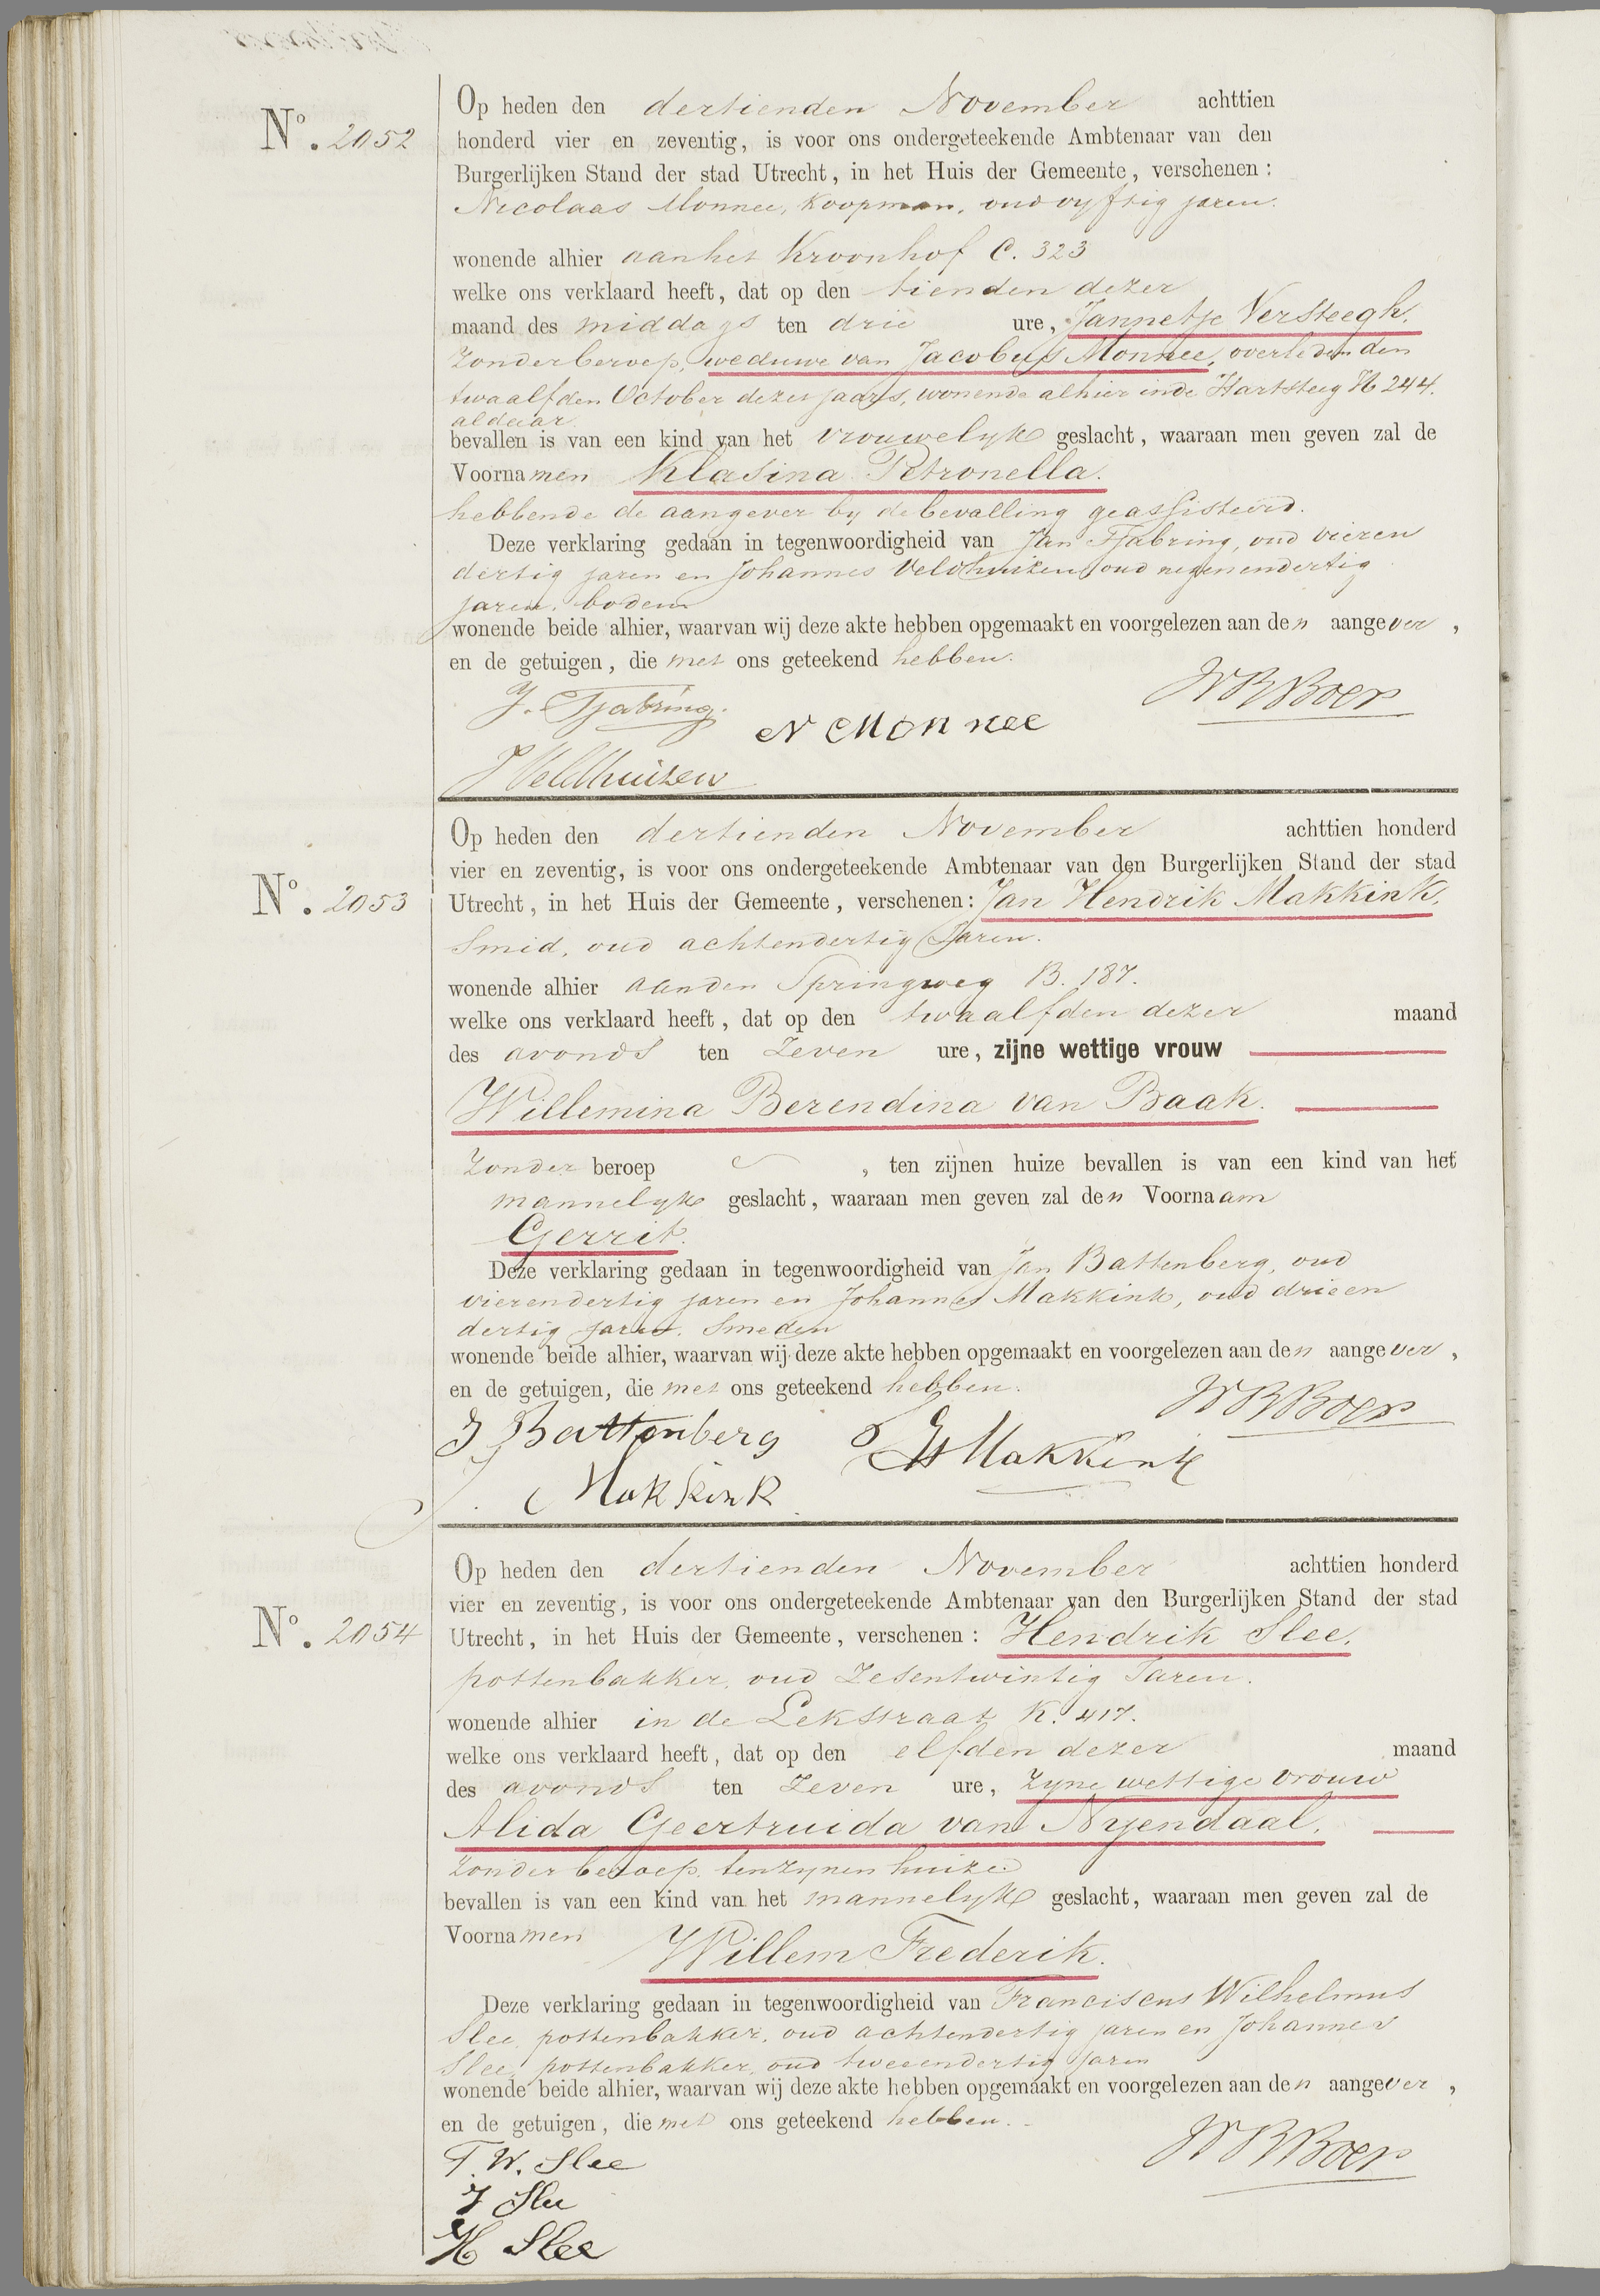 Op heden den dertienden November achttien
No. 2052
honderd vier en zeventig, is voor ons ondergeteekende Ambtenaar van den
Burgerlijken Stand der stad Utrecht, in het Huis der Gemeente, verschenen:
Nicolaas Monnee, Koopman, oud vyftig jaren.
wonende alhier aan het Kroonhof C. 323
welke ons verklaard heeft, dat op den tienden dezer
maand des middags ten drie ure, Jannetje Versteegh,
Zonder beroep, weduwe van Jacobus Monnee, overleden den
twaalfden October dezer jaars, wonende alhier in de Hartsteeg H 244.
aldaar
bevallen is van een kind van het vrouwelyk geslacht, waaraan men geven zal de
Voornamen Klasina Petronella.
hebbende de aangever by de bevalling geassisteerd.
Deze verklaring gedaan in tegenwoordigheid van Jan Tjabring, oud vieren
dertig jaren en Johannes Veldhuizen, oud negenendertig
jaren. bodem
wonende beide alhier, waarvan wij deze akte hebben opgemaakt en voorgelezen aan den aangever,
en de getuigen, die met ons geteekend hebben.
WBBoer
J. Tjabring.
N Monnee
J Veldhuizen
Op heden den dertienden November achttien honderd
vier en zeventig, is voor ons ondergeteekende Ambtenaar van den Burgerlijken Stand der stad
No. 2053
Utrecht, in het Huis der Gemeente, verschenen: Jan Hendrik Makkink,
Smid, oud achtendertig Jaren.
wonende alhier aan den Springweg B. 187.
welke ons verklaard heeft, dat op den twaalfden dezer maand
des avonds ten Zeven ure, zijne wettige vrouw
Willemina Berendina van Baak.
Zonder beroep, ten zijnen huize bevallen is van een kind van het
mannelyk geslacht, waaraan men geven zal den Voornaam
Gerrit.
Deze verklaring gedaan in tegenwoordigheid van Jan Battenberg, oud
vierendertig jaren en Johannes Makkink, oud drieen
dertig jaren. Smeden
wonende beide alhier, waarvan wij deze akte hebben opgemaakt en voorgelezen aan den aangever,
en de getuigen, die met ons geteekend hebben.
WBBoer
J Battenberg
JH Makkink
J. Makkink
Op heden den dertienden November achttien honderd
vier en zeventig, is voor ons ondergeteekende Ambtenaar van den Burgerlijken Stand der stad
No. 2054
Utrecht, in het Huis der Gemeente, verschenen: Hendrik Slee,
pottenbakker, oud Zesentwintig Jaren.
wonende alhier in de Lekstraat K. 417.
welke ons verklaard heeft, dat op den elfden dezer maand
des avonds ten Zeven ure, Zyne wettige vrouw
Alida Geertruida van Nyendaal,
Zonder beroep. ten zynen huize
bevallen is van een kind van het mannelyk geslacht, waaraan men geven zal de
Voornamen Willem Frederik.
Deze verklaring gedaan in tegenwoordigheid van Franciscus Wilhelmus
Slee, pottenbakker, oud achtendertig jaren en Johannes
Slee, pottenbakker, oud tweeendertig jaren
wonende beide alhier, waarvan wij deze akte hebben opgemaakt en voorgelezen aan den aangever,
en de getuigen, die met ons geteekend hebben.
WBBoer
F. W. Slee
J Slee
H Slee